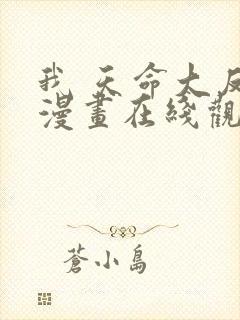 我 天命大反
漫畫在綫觀
蒼小島